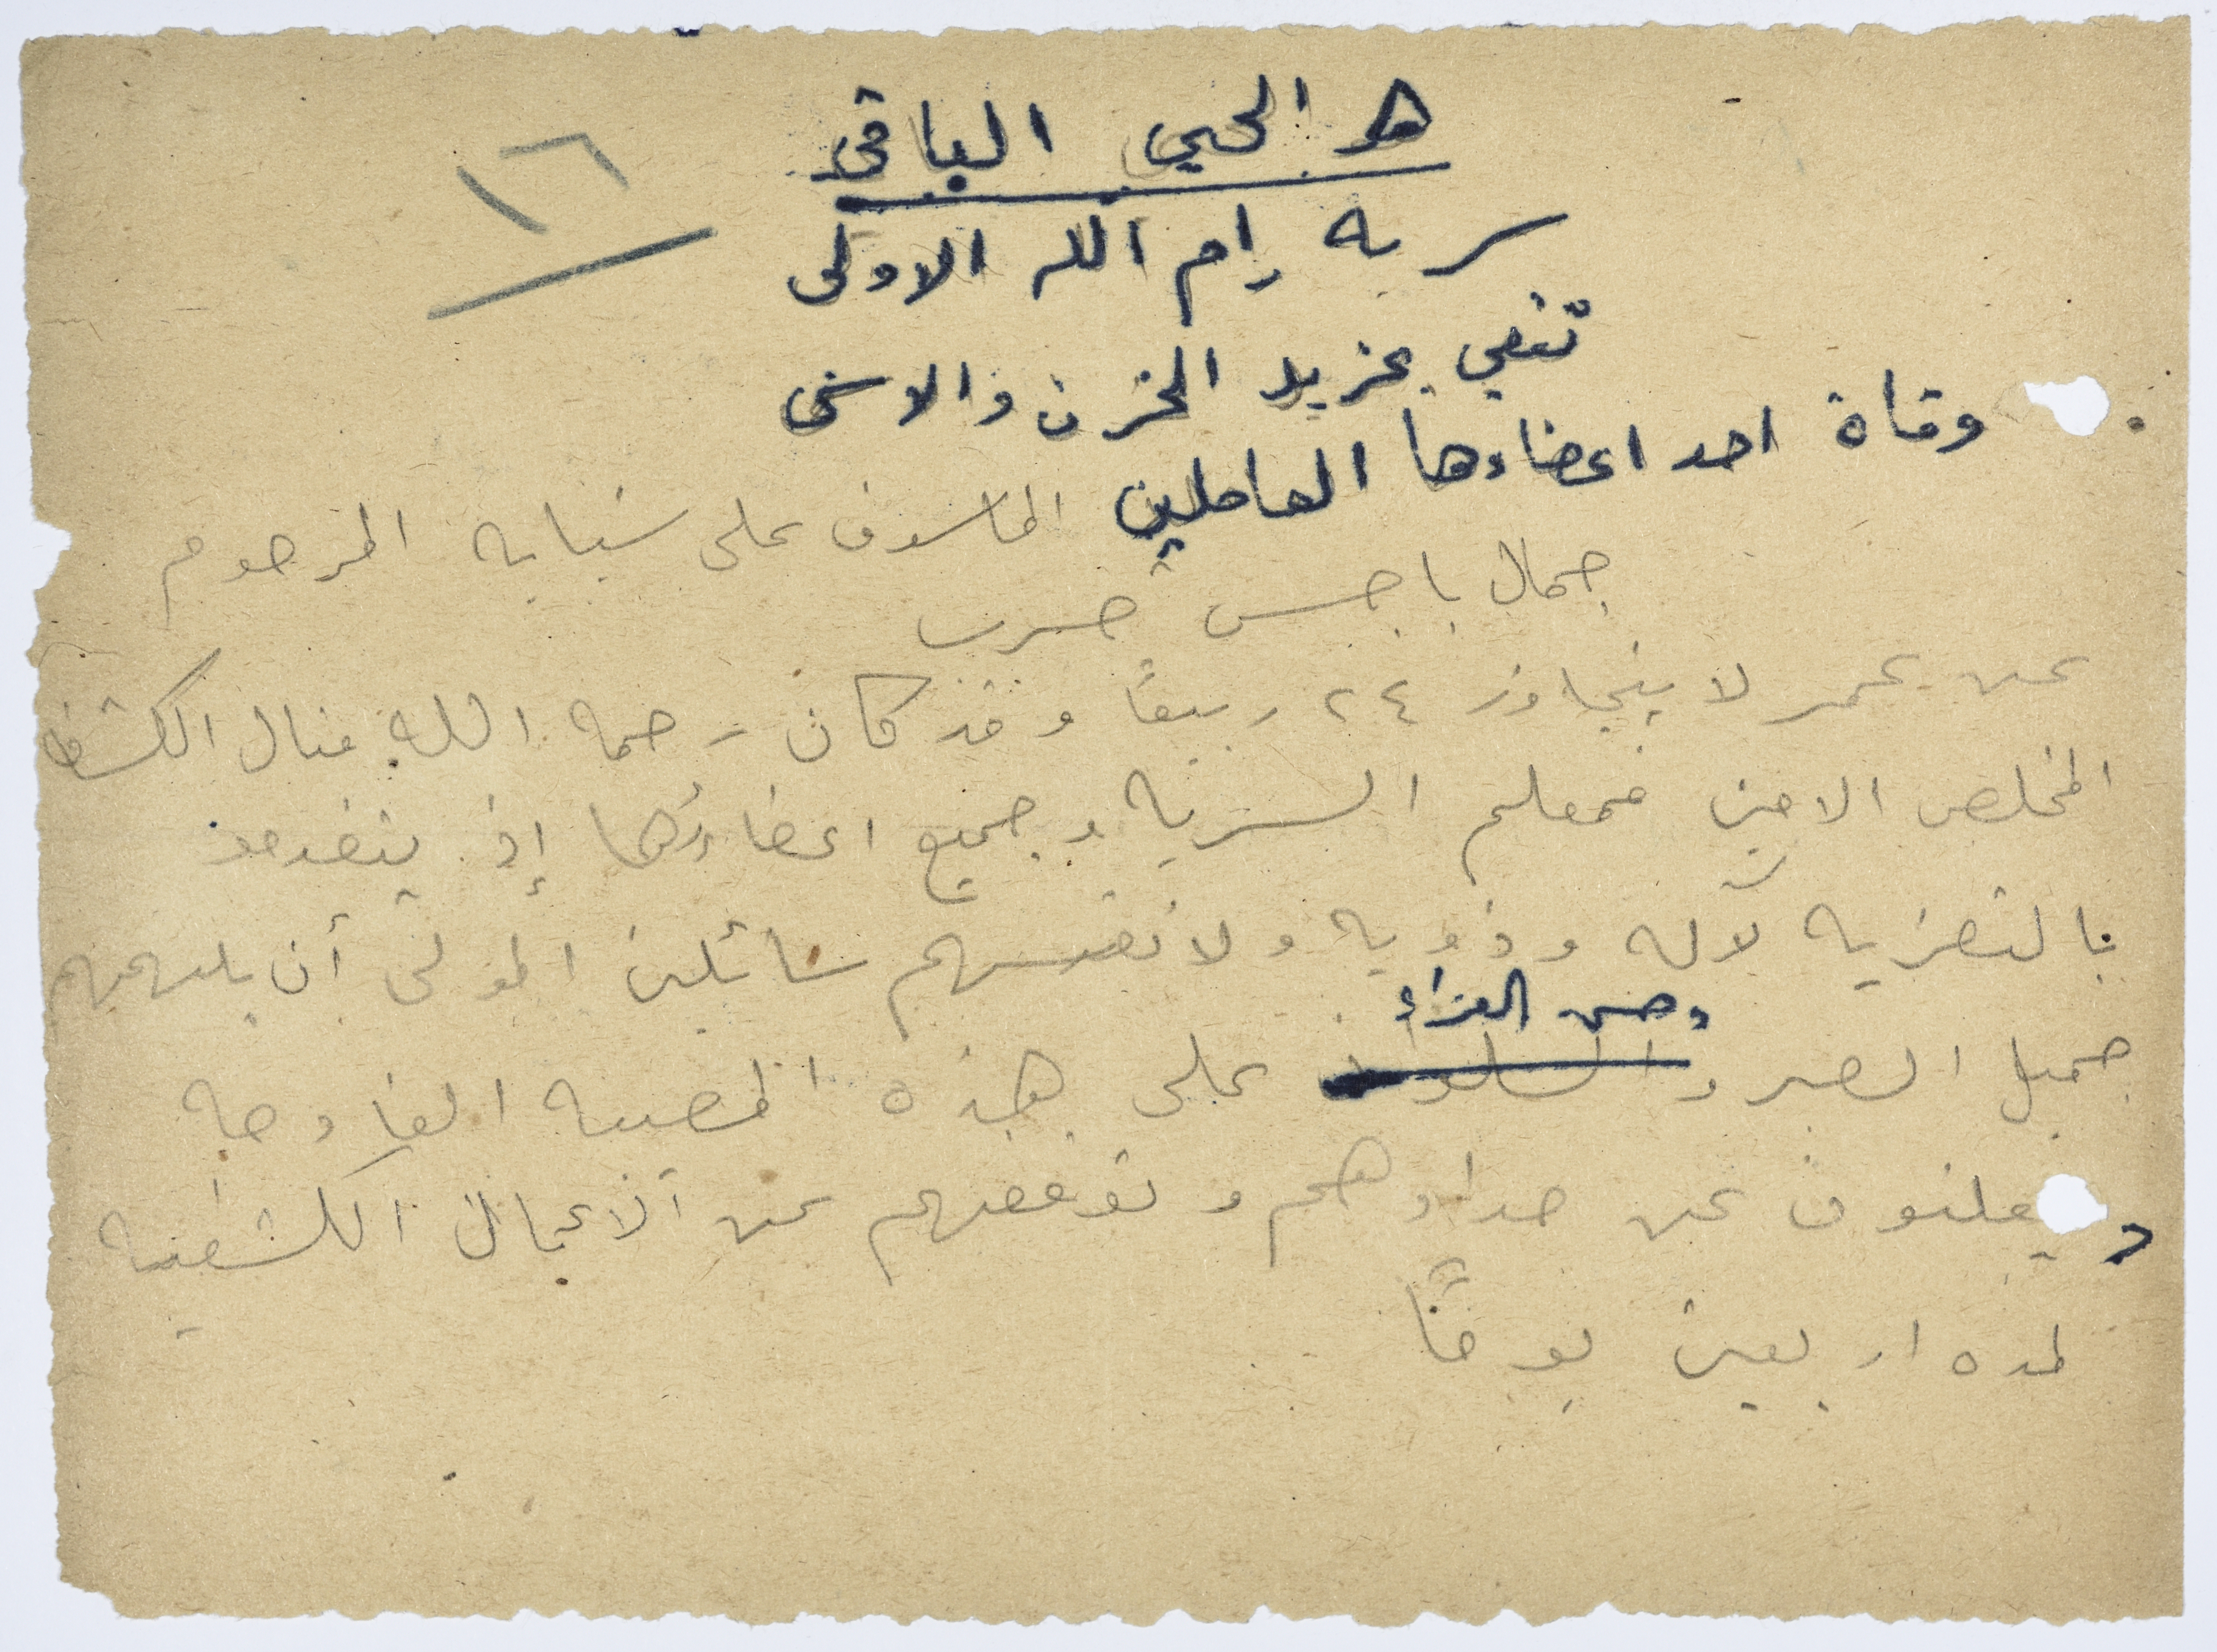 هو الحي الباقي
١٦
سرية رام الله الاولى
تنعي بمزيد الحزن والاسى
وفاة احد اعضاءها العاملين الماسوف على شبابه المرحوم
جمال باجس حرب
عن عمر لا يتجاوز ٢٤ ربيعًا وقد كان رحمه الله مثال الكشاف
المخلص الامين فمعلم السرية وجميع اعضاءها إذ يتقدمون
بالتعزيه لآله وذويه ولانفسهم سائلين المولى أن يلهمهم
وحسن العزاء
جميل الصبر والسلوان على هذه المصيبه الفادحه
ويعلنون عن حدادهم وتوقفهم عن الاعمال الكشفيه
لمده اربعين يومًا